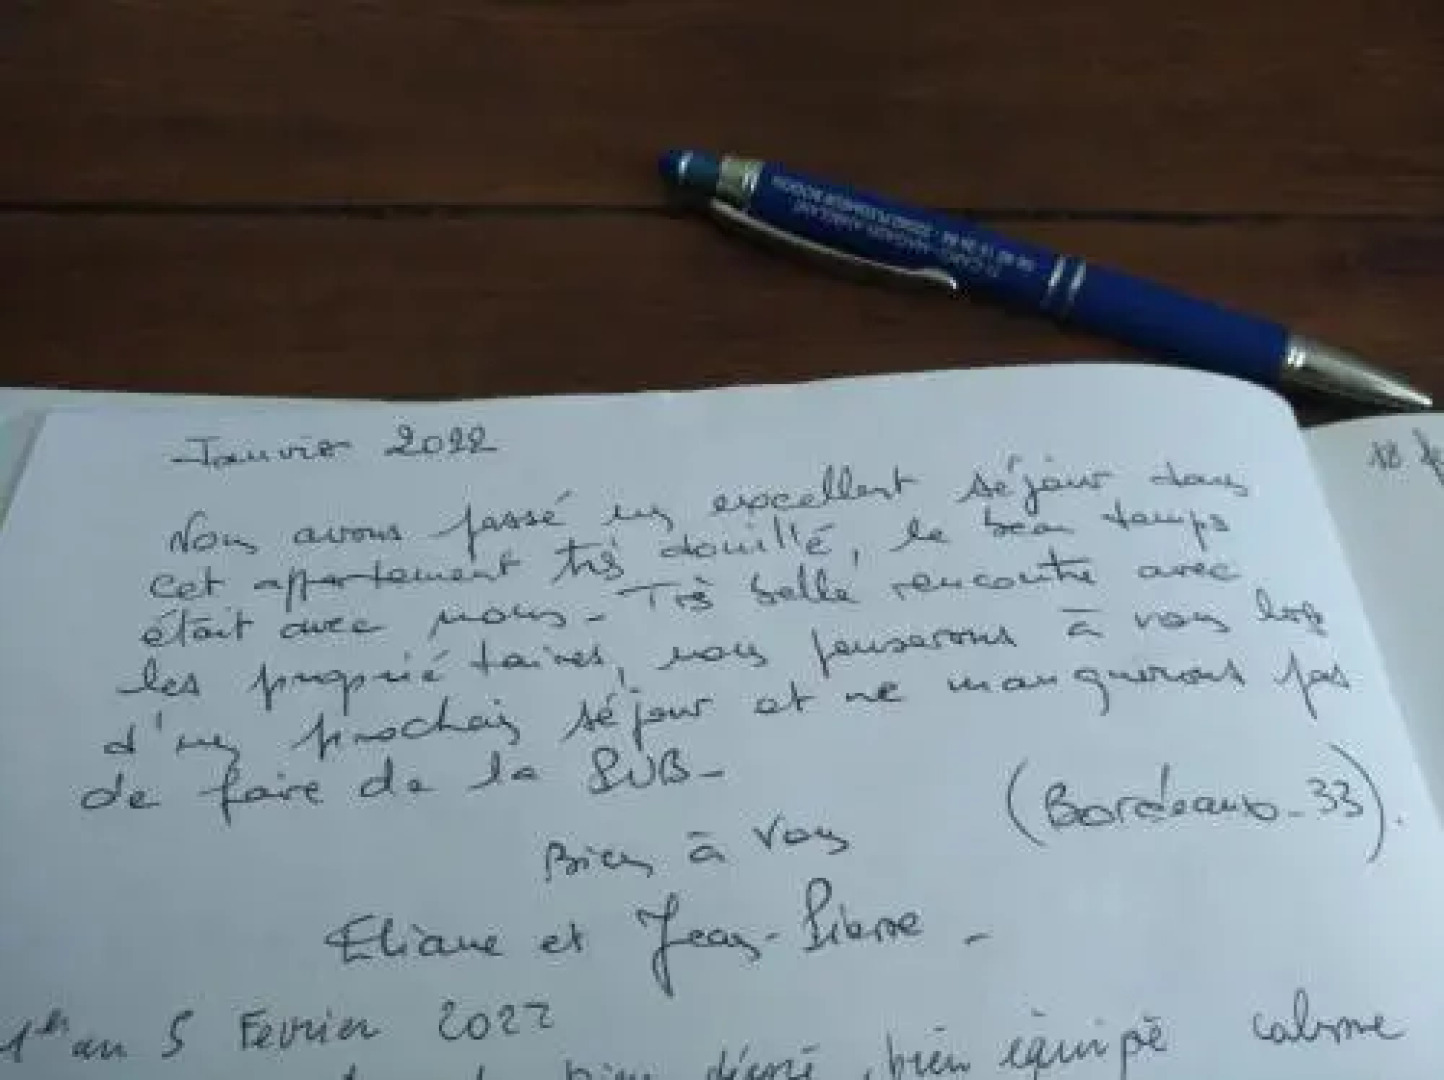 Janvier 2022
Nous avons passé un excellent séjour dans
cet appartement très douillé, le beau temps
était avec nous - Très belle rencontre avec
les propriétaires, nous penserons à vous lors
d'un prochain séjour et ne manquerons pas
de faire de la PUB -
(Bordeaux - 33).
Bien à vous
Eliane et Jean-Pierre -
1er au 5 Février 2022
bien équipé calme
18